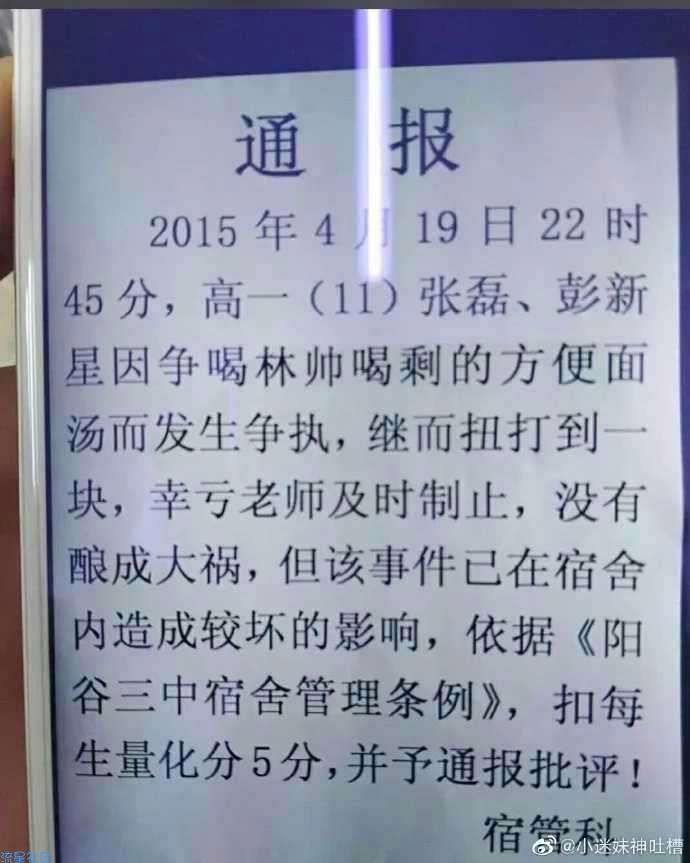 通 报
2015 年 4 月 19 日 22 时
45 分，高一（11）张磊、彭新
星因争喝林帅喝剩的方便面
汤而发生争执，继而扭打到一
块，幸亏老师及时制止，没有
酿成大祸，但该事件已在宿舍
内造成较坏的影响，依据《阳
谷三中宿舍管理条例》，扣每
生量化分 5 分，并予通报批评！
宿管科
@小迷妹神吐槽